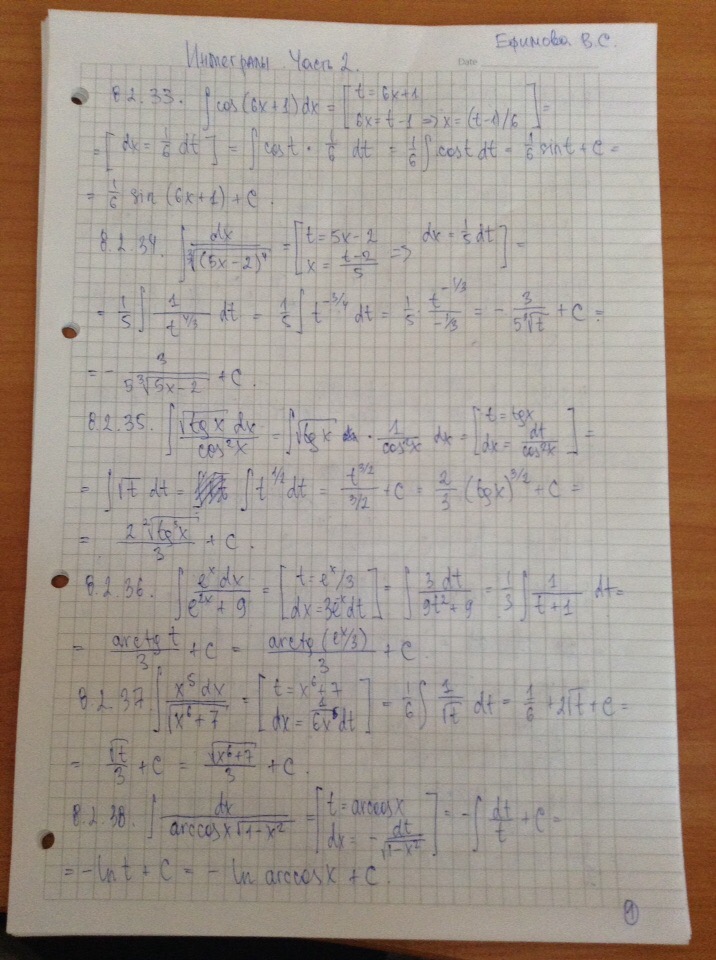 Ефимова В.С.
Интегралы Часть 2.
Date
8.2.33. ∫ cos(6x+1) dx = [t = 6x+1; 6x = t-1 => x = (t-1)/6] =
= [dx = 1/6 dt] = ∫ cos t · 1/6 dt = 1/6 ∫ cos t dt = 1/6 sin t + C =
= 1/6 sin (6x+1) + C.
8.2.34. ∫ dx/∛(5x-2)⁴ = [t = 5x-2; x = (t-2)/5 => dx = 1/5 dt] =
= 1/5 ∫ 1/t^(4/3) dt = 1/5 ∫ t^(-3/4) dt = 1/5 · t^(-1/3)/(-1/3) = - 3/(5∛t) + C =
= - 3/(5∛(5x-2)) + C.
8.2.35. ∫ √(tg x) dx/cos²x = ∫ √(tg x) · 1/cos²x dx = [t = tg x; dx = dt/cos²x] =
= ∫ √t dt = ∫ t^(1/2) dt = t^(3/2)/(3/2) + C = 2/3 (tg x)^(3/2) + C =
= 2 ²√(tg³x)/3 + C.
8.2.36. ∫ eˣ dx/(e²ˣ + 9) = [t = eˣ/3; dx = 3e⁻ˣ dt] = ∫ 3 dt/(9t² + 9) = 1/3 ∫ 1/(t+1) dt =
= arctg t/3 + C = arctg (eˣ/3)/3 + C.
8.2.37. ∫ x⁵ dx/√(x⁶+7) = [t = x⁶+7; dx = 1/(6x⁵) dt] = 1/6 ∫ 1/√t dt = 1/6 · 2√t + C =
= √t/3 + C = √(x⁶+7)/3 + C.
8.2.38. ∫ dx/(arccos x √(1-x²)) = [t = arccos x; dx = - dt/√(1-x²)] = - ∫ dt/t + C =
= - ln t + C = - ln arccos x + C.
1